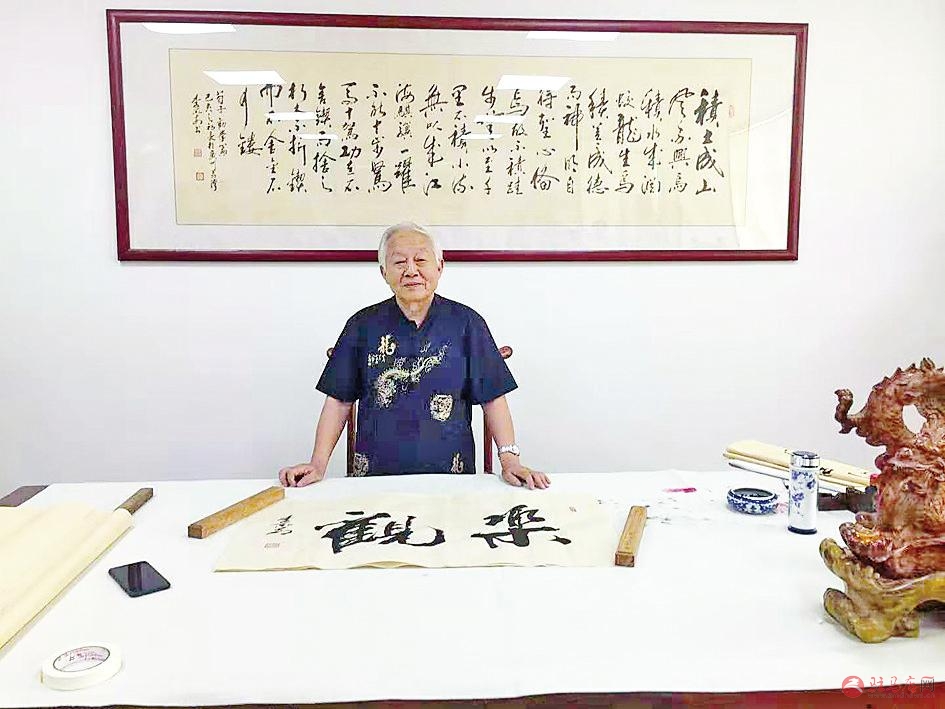 積土成山
風雨興焉
積水成渊
蛟龍生焉
積善成德
而神明自
得聖心備
焉故不積跬
步無以至千
里不積小流
無以成江
海騏驥一躍
不能十步駑
馬十駕功在不
舍鍥而捨之
朽木不折鍥
而不舍金石
可鏤
荀子勸學篇
龍
樂觀
驻马店网